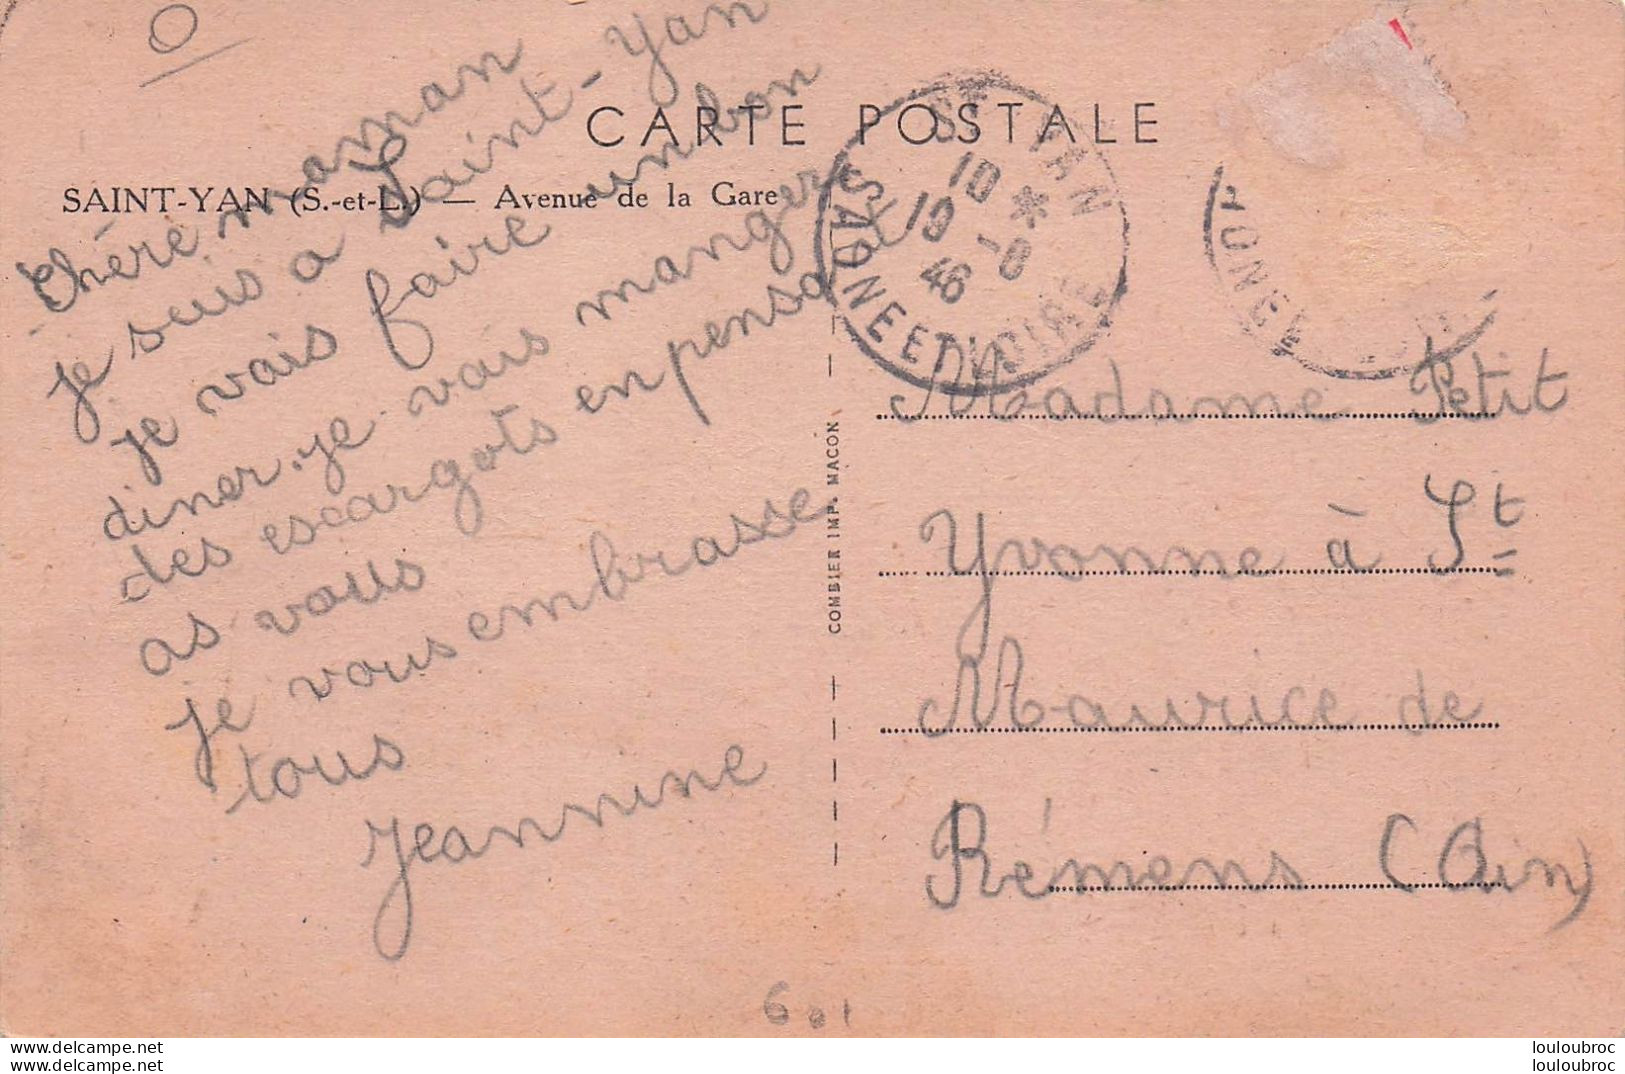 CARTE POSTALE
SAINT-YAN (S.-et-L.) — Avenue de la Gare
Chère maman
je suis a Saint-Yan
je vais faire un bon
diner. je vais manger
des escargots en pensa
as vous
je vous embrasse
tous
Jeannine
COMBIER IMP. MACON
ST YAN
10 *
19 -8
46
SAONE ET LOIRE
Madame Petit
Yvonne à St
Maurice de
Rémens (Ain)
louloubroc
louloubroc
louloubroc
louloubroc